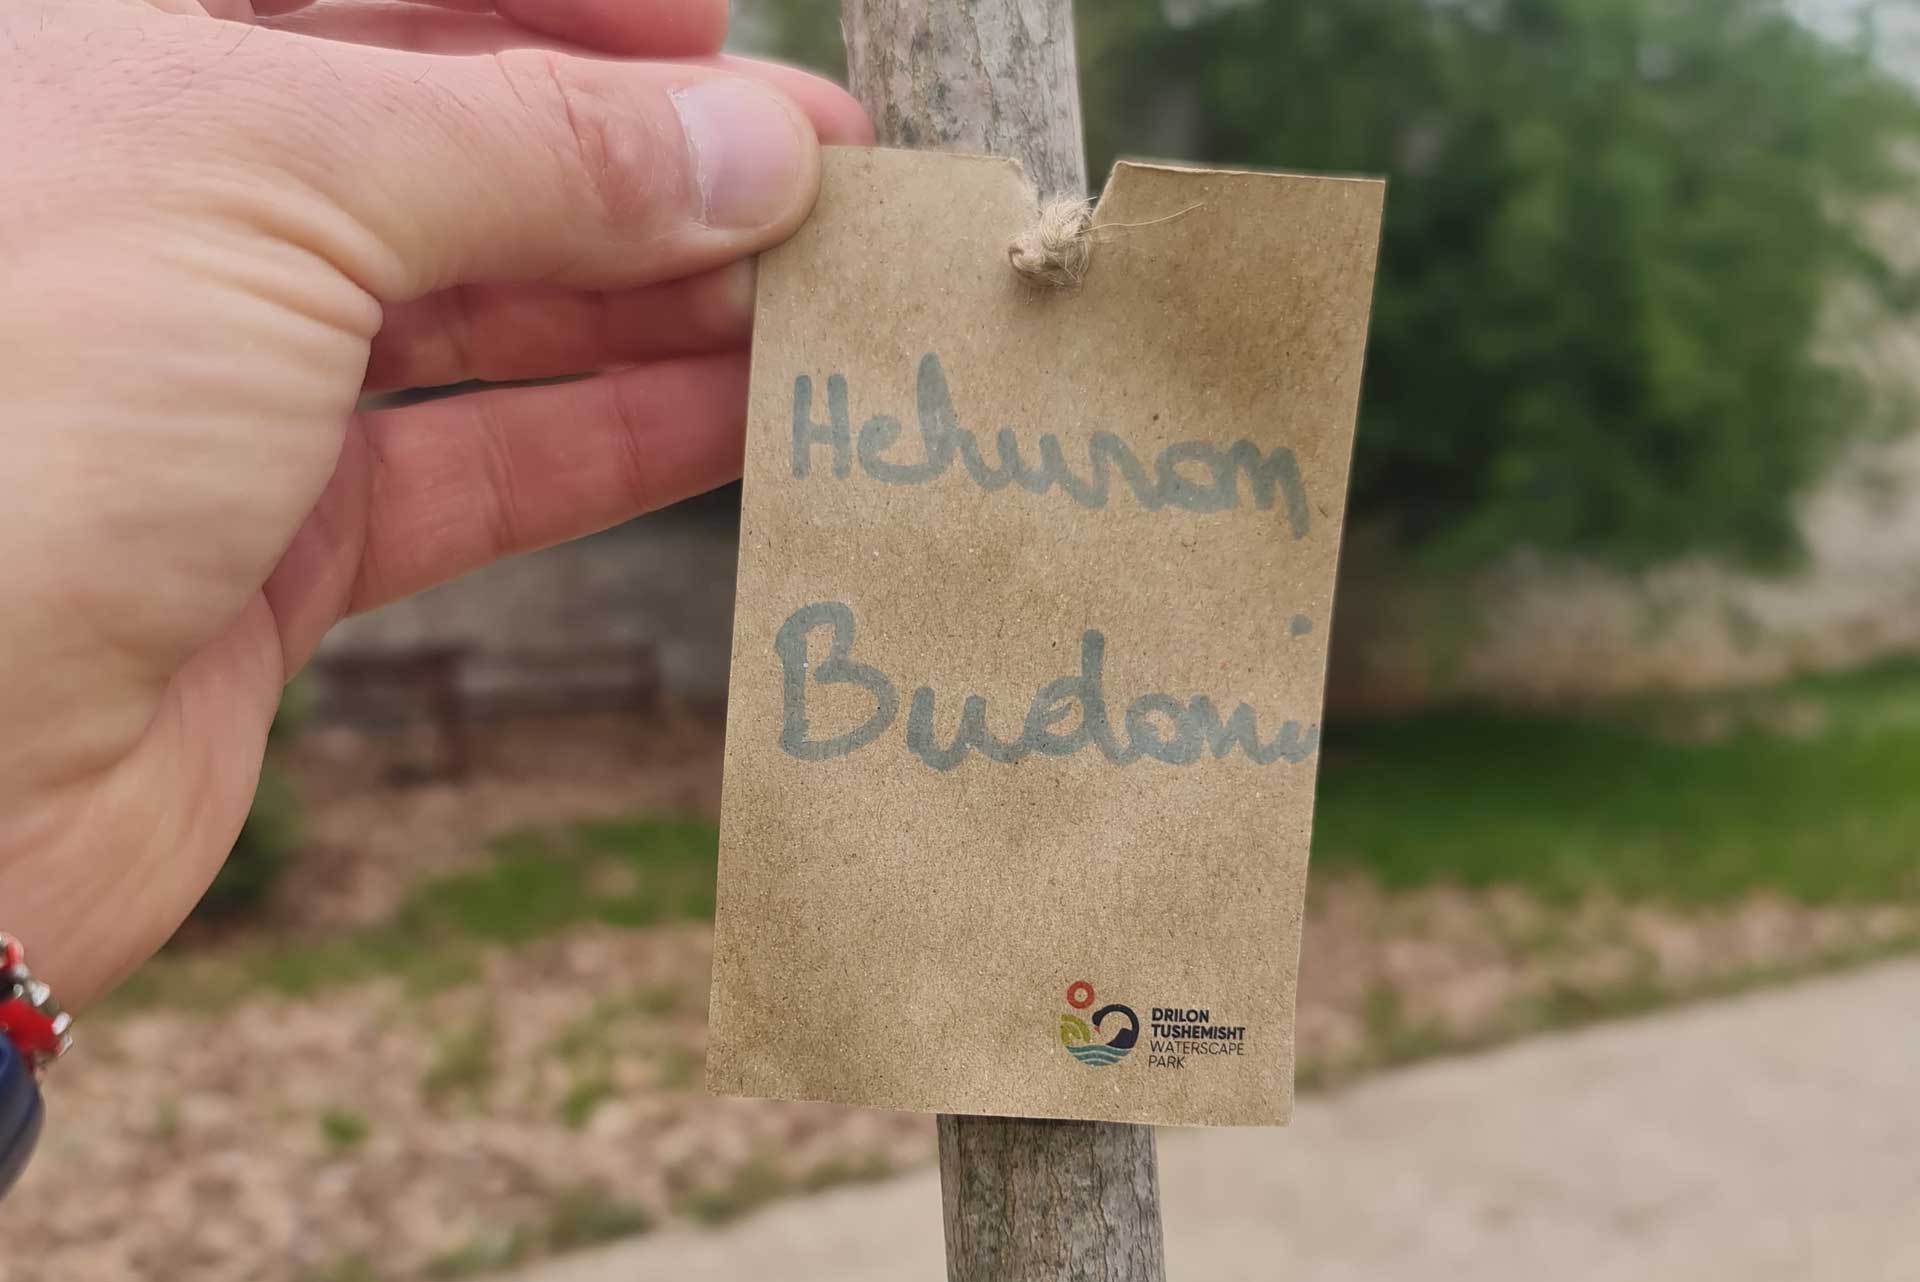 Hekuran
Budani
DRILON
TUSHEMISHT
WATERSCAPE
PARK